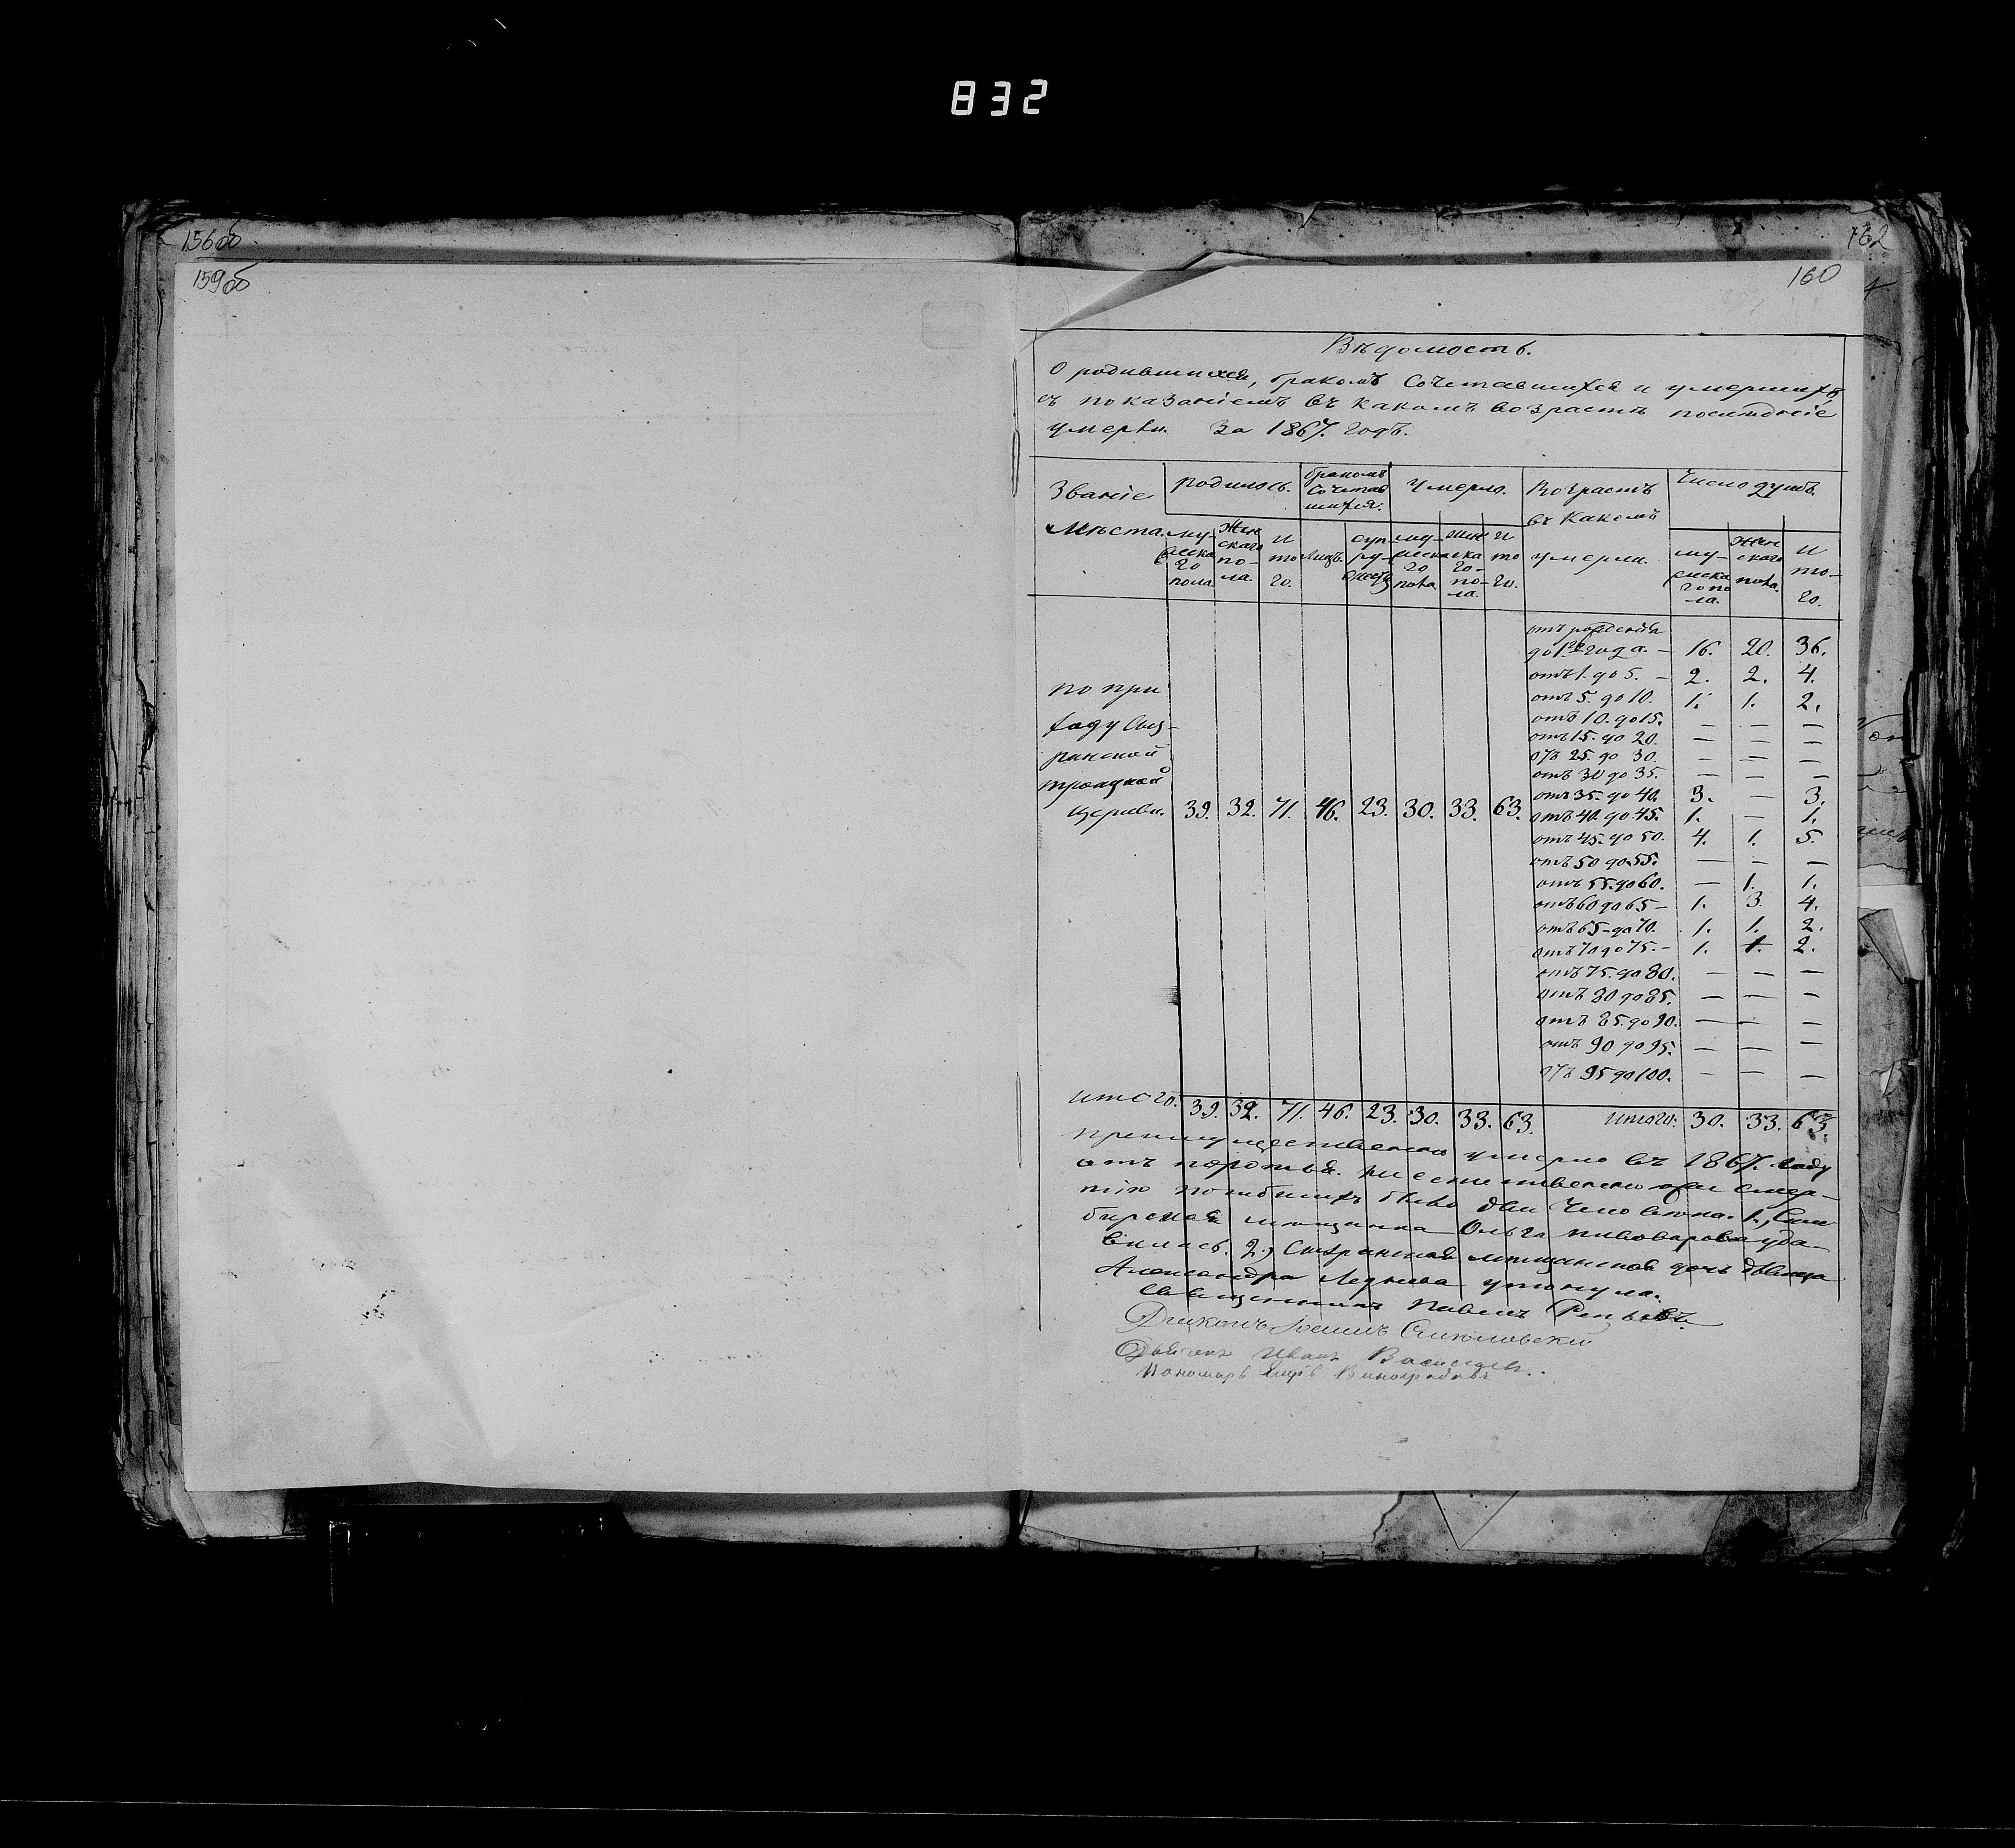 832
156об
159об
162
160
Вѣдомость.
О родившихся, бракомъ сочетавшихся и умершихъ
съ показаніемъ въ какомъ возрастѣ послѣдніе
умерли за 1867. годъ.
Званіе мѣста.
Родилось. Бракомъ сочетавшихся. Умерло. Возрастъ въ какомъ умерли. Число душъ.
мужеска го пола Жен скаго по- ла. И то го. Лицъ. суп ру- жествъ му- жеска го пола жен ска го- по- ла. и то го. му- жеска го по ла. Жен скаго пола. и то- го.
отъ рожденія
до 1го года. – 16. 20. 36.
отъ 1. до 5. – 2. 2. 4.
отъ 5. до 10. 1. 1. 2.
отъ 10. до 15. — — —
отъ 15. до 20. — — —
отъ 25. до 30. — — —
отъ 30 до 35. — — —
отъ 35. до 40. 3. — 3.
отъ 40. до 45. 1. — 1.
отъ 45. до 50. 4. 1. 5.
отъ 50 до 55. — — —
отъ 55. до 60. — 1. 1.
отъ 60 до 65 – 1. 3. 4.
отъ 65 – до 70. 1. 1. 2.
отъ 70 до 75. – 1. 1. 2.
отъ 75. до 80. — — —
отъ 80 до 85. — — —
отъ 85. до 90. — — —
отъ 90 до 95. — — —
отъ 95 до 100. — — —
по при
ходу Сыз-
ранской
троицкой
церкви. 39. 32. 71. 46. 23. 30. 33. 63.
итого. 39. 32. 71. 46. 23. 30. 33. 63. итого: 30. 33. 63.
преимущественно умерло въ 1867. году
отъ
погибшихъ было два человѣка. 1, Сим
бирская мѣщанка Ольга Пивоварова уда-
вилась. 2, Сызранская мѣщанская дочь дѣвица
Александра Леднева утонула.
Священникъ Павелъ
Діаконъ
Дьячекъ Иванъ
Пономарь Виноградовъ